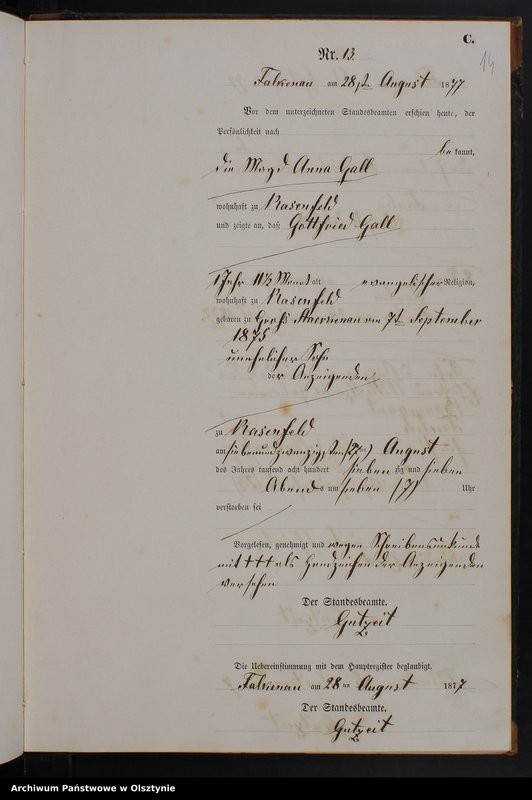 C.
14
Nr. 13.
Falkenau am 28ten August 1877
Vor dem unterzeichneten Standesbeamten erschien heute, der
Persönlichkeit nach
bekannt,
die Magd Anna Gall
wohnhaft zu Rasenfeld
und zeigte an, daß Gottfried Gall
1 Jahr 11½ Monat alt evangelischer Religion,
wohnhaft zu Rasenfeld
geboren zu Groß am 7ten September
1875
unehelicher Sohn
der Anzeigenden
zu Rasenfeld
am siebenundzwanzigsten (27ten) August
des Jahres tausend acht hundert siebenzig und sieben
Abends um sieben (7) Uhr
verstorben sei
Vorgelesen, genehmigt und wegen Schreibensunkunde
mit +++ als Handzeichen der Anzeigenden
versehen
Der Standesbeamte.
Gutzeit
Die Uebereinstimmung mit dem Hauptregister beglaubigt.
Falkenau am 28ten August 1877
Der Standesbeamte.
Gutzeit
Archiwum Państwowe w Olsztynie